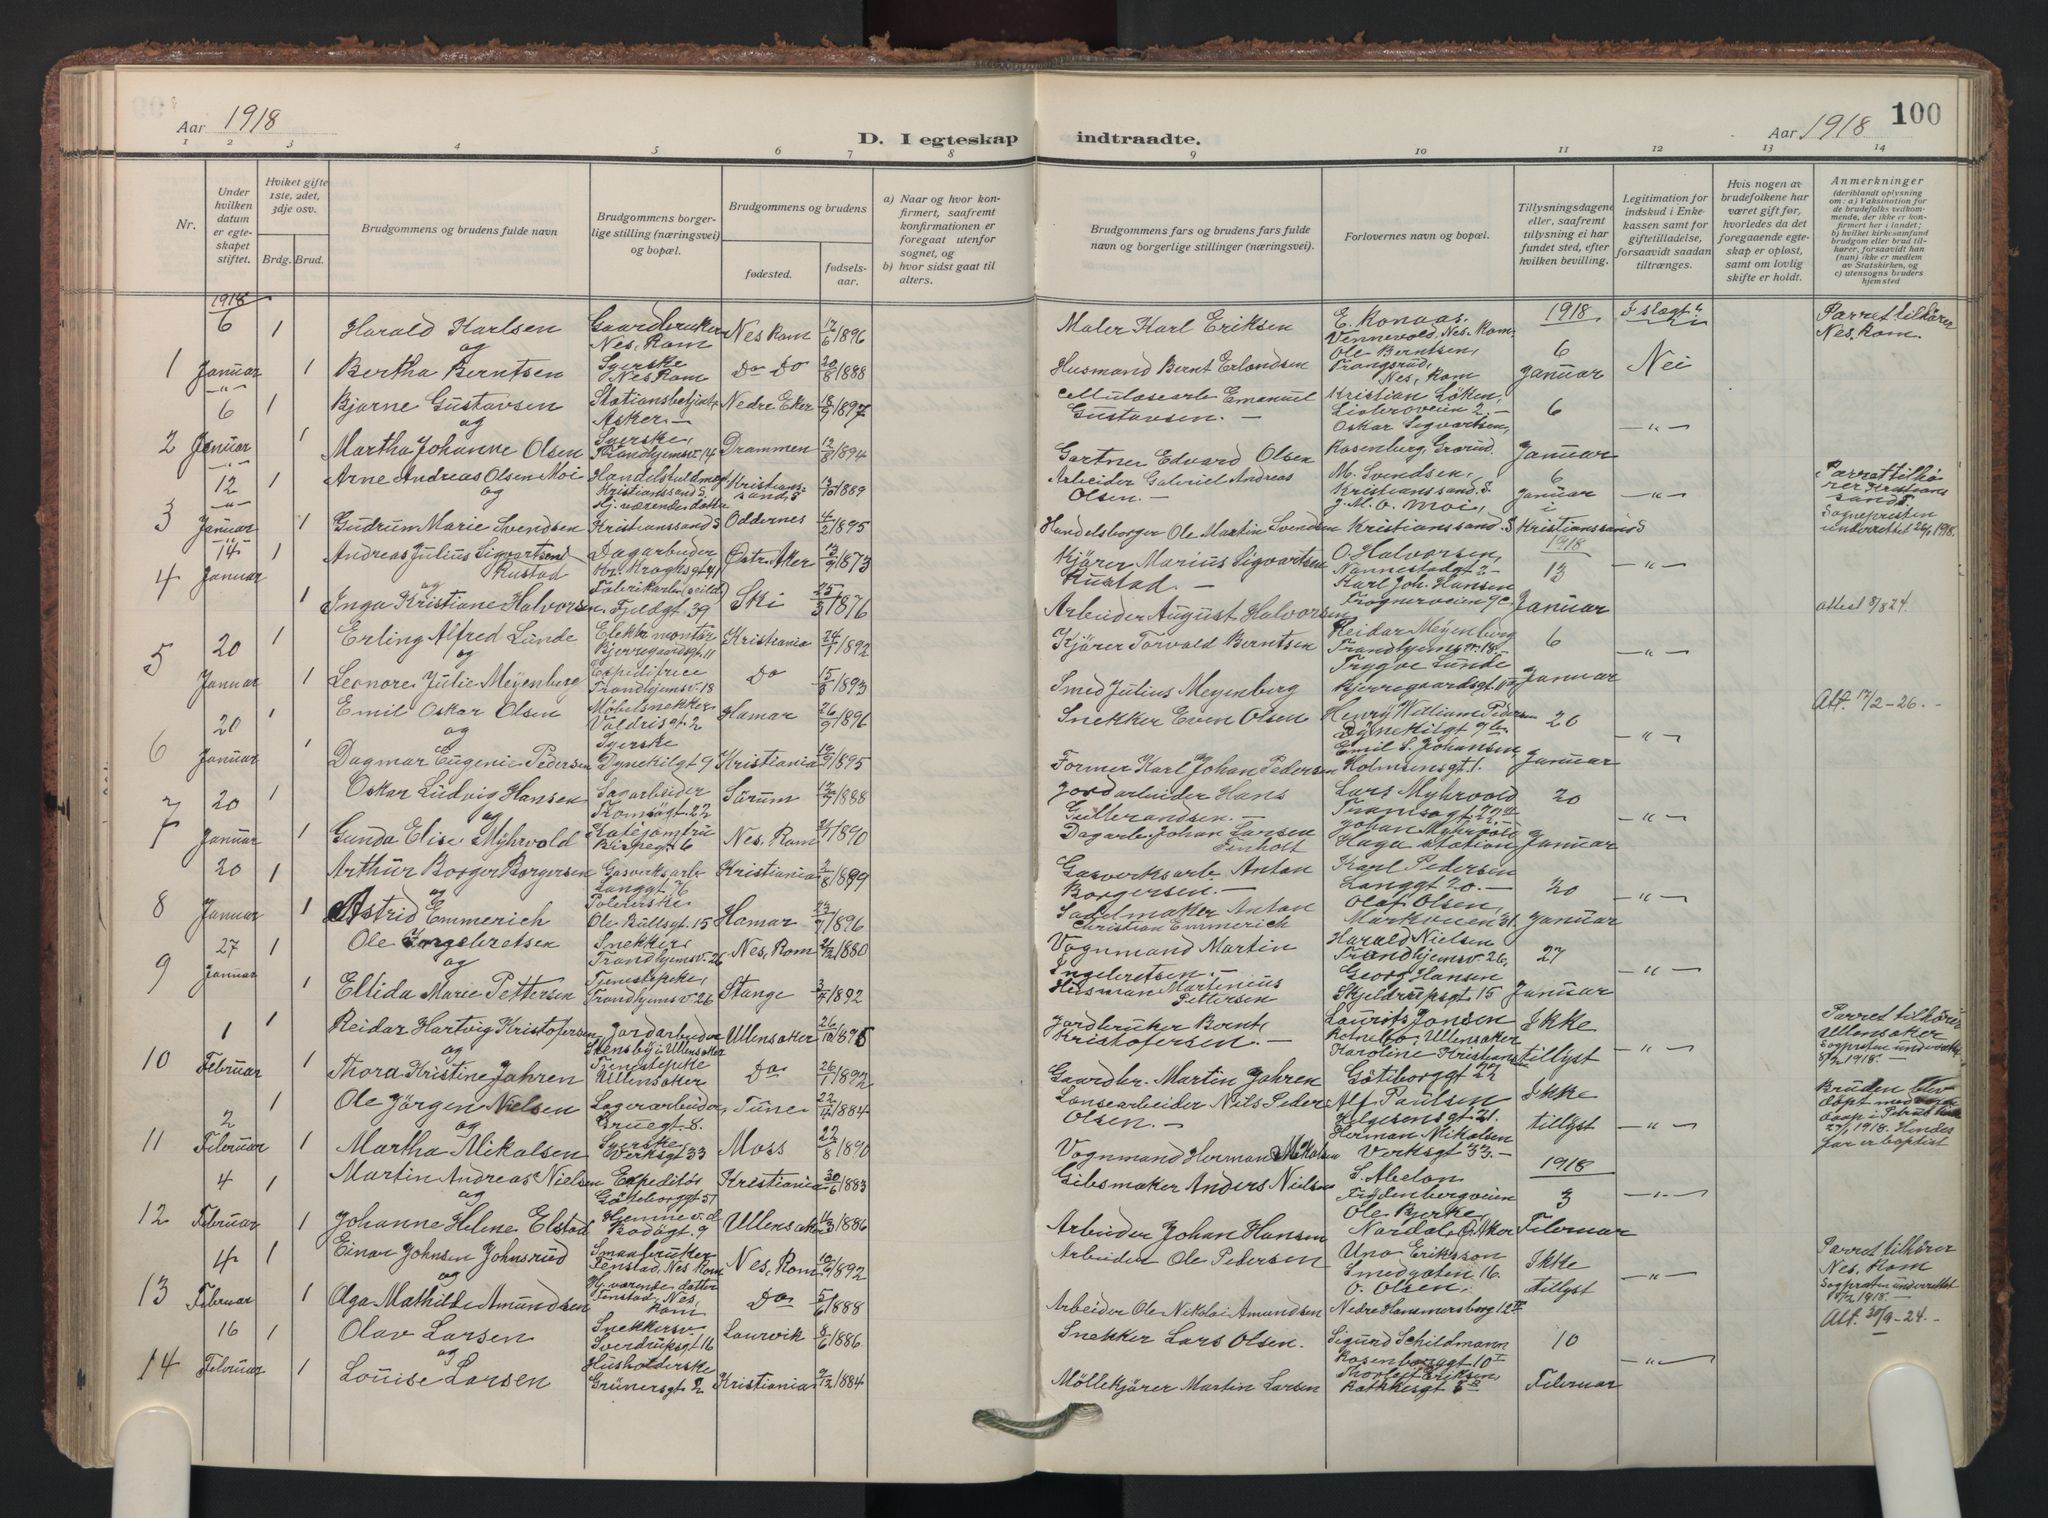 Aar 1918
D. I egteskap indtraadte.
Aar 1918
100
1 2 3 4 5 6 7 8 9 10 11 12 13 14
Nr.
Under hvilken datum er egteskapet stiftet.
Hviket gifte 1ste, 2det, 3dje osv.
Brdg. Brud.
Brudgommens og brudens fulde navn
Brudgommens borgerlige stilling (næringsvei) og bopæl.
Brudgommens og brudens
fødested.
fødselsaar.
a) Naar og hvor konfirmert, saafremt konfirmationen er foregaat utenfor sognet, og
b) hvor sidst gaat til alters.
Brudgommens fars og brudens fars fulde navn og borgerlige stillinger (næringsvei).
Forlovernes navn og bopæl.
Tillysningsdagene eller, saafremt tillysning ei har fundet sted, efter hvilken bevilling.
Legitimation for indskud i Enkekassen samt for giftetilladelse, forsaavidt saadan tiltrænges.
Hvis nogen av brudefolkene har været gift før, hvorledes da det foregaaende egteskap er opløst, samt om lovlig skifte er holdt.
Anmerkninger
(deriblandt oplysning om: a) Vaksination for de brudefolks vedkommende, der ikke er konfirmert her i landet; b) hvilket kirkesamfund brudgom eller brud tilhører, forsaavidt han (hun) ikke er medlem av Statskirken, og c) utensogns bruders hjemsted
1918
6 1 Harald Karlsen Gaardbruker Nes, Rom 17/6 1896 Maler Karl Eriksen E. Konaas 1918 I slægt? Parret tilhører
og Nes, Rom Vennevold, Nes. Rom. Nes, Rom.
1 Januar 1 Bertha Berntsen Syerske Nes Rom Do Do 20/8 1888 Husmand Bernt Erlandsen Ole Berntsen, Trangsrud, Nes, Rom 6 Januar Nei
6 1 Bjarne Gustavsen Asker Nedre Eker 18/9 1897 Cellulosearb Emanuel Gustavsen. Kristian Löken, 6
og
2 Januar 1 Martha Johanne Olsen Syerske, Trondhjemsv. 14 Drammen 12/8 1894 Gartner Edvard Olsen Oskar Sigvartsen, Rosenberg, Grorud Januar
12 1 Arne Andreas Olsen Moi Kristianssand S. Kristianssand S 1889 Arbeider Gabriel Andreas Olsen. M. Svendsen, Kristianssand S. 6 Januar
og
3 Januar 1 Gudrum Marie Svendsen Hj. værende datter Kristianssand S Oddernes 4/2 1895 Handelsborger Ole Martin Svendsen J. M. O. Moi, Kristianssand S i Kristianssand S Sognepresten underrettet 26/1 1918.
14 1 Andreas Julius Sigvartsen Rustad Dagarbeider Kr. Kroghsgt 41 Østr. Aker 13/9 1873 Kjörer Marius Sigvartsen Rustad. O. Halvorsen, Nannestadgt 2 1918 13
og
4 Januar 1 Inga Kristiane Halvorsen Fjeldgt. 39 Ski 25/3 1876 Arbeider August Halvorsen Karl Joh. Hansen Frognerveien 9c Januar attest 8/8 24.
20 1 Erling Alfred Lunde Elektr. montör Bjerregaardsgt 11 Kristiania 24/1 1892 Kjörer Torvald Berntsen Reidar Meyenberg Trondhjemsv. 18. 6
og
5 Januar 1 Leonore Julie Meyenberg Expeditrice Trondhjemsv. 18 Do 15/8 1893 Smed Julius Meyenberg Trygve Lunde Bjerregaardsgt. 11 Januar
20 1 Emil Oskar Olsen Möbelsnekker Valdrisgt 2 Hamar 26/9 1896 Snekker Even Olsen Henry William Pedersen Dynekilgt 9 20 Att. 17/2-26.
og
6 Januar 1 Dagmar Eugenie Pedersen Syerske Dynekilgt 9 Kristiania 1895 Former Karl Johan Pedersen Emil S. Johansen, Holmsensgt. 1. Januar
20 1 Oskar Ludvig Hansen Sagarbeider Tromsögt. 22 Sörum 1888 Jordarbeider Hans Gulbrandsen. Lars Myhrvold Tromsögt. 22 20
og
7 Januar 1 Gunda Elise Myhrvold Bispegt 6 Nes, Rom 1890 Dagarb. Johan Larsen Johan Myhrvold Haga station Januar
20 1 Arthur Borger Borgersen Gasverksarb Langgt. 76 Kristiania 2/8 1899 Gasverksarb Anton Borgersen. Karl Pedersen Langgt 20. 20
og
8 Januar 1 Astrid Emmerich Polererske Ole Bullsgt. 15 Hamar 23/7 1896 Sadelmaker Anton Christian Emmerich Olaf Olsen, Markveien 31. Januar
27 1 Ole Ingebretsen Snekker Trondhjemsv. 26 Nes, Rom 1880 Vognmand Martin Ingebretsen. Harald Nielsen Trondhjemsv. 26, 27
og
9 Januar 1 Ellida Marie Pettersen Tjenestepike, Trondhjemsv. 26 Stange 3/7 1892 Husman Martinius Pettersen Georg Hansen Skjeldrupsgt 15 Januar
1 1 Reidar Hartvig Kristofersen Jordarbeider Stensby i Ullensaker Ullensaker 26/10 1895 Jordbruker Bernt Kristofersen. Laurits Jonsen Rotnebo, Ullensaker Ikke Parret tilhører Ullensaker
og
10 Februar 1 Thora Kristine Jahren Tjenestepike Ullensaker Do 26/1 1892 Gaardbr. Martin Jahren Karoline Kristiansen Göteborggt 22 tillyst 8/2 1918.
2 1 Ole Jörgen Nielsen Lagerarbeider Gruegt. 8. Tune 1884 Lossearbeider Nils Peder Olsen. Alf Paulsen Helgesensgt. 21. Ikke Bruden blev döpt
og
11 Februar 1 Martha Mikalsen Syerske Verksgt 33 Moss 22/8 1890 Vognmand Herman Mikalsen Herman Mikalsen Verksgt 33. tillyst 27/1 1918. Hendes far er baptist
4 1 Martin Andreas Nielsen Expeditör Göteborggt 51 Kristiania 30/6 1883 Gibsmaker Anders Nielsen S. Abelon Frydenbergveien 1918 3
og
12 Februar 1 Johanne Helene Elstad Hjemmev. d. Bodögt. 9 Ullensaker 1886 Arbeider Johan Hansen Ole Bjerke, Nordal, Ö. Aker Februar
4 1 Einar Johnsen Johnsrud Smaabruker Fenstad, Nes Rom Nes, Rom 10/9 1892 Arbeider Ole Pedersen Uno Eriksson Smedgaten 16. Ikke Parret tilhører Nes, Rom
og
13 Februar 1 Olga Mathilde Amundsen Hj. værende datter Fenstad, Nes, Rom Do 5/6 1888 Arbeider Ole Nikolai Amundsen O. Olsen, Nedre Hammersborg 12 tillyst Sogpræsten underrettet 1918.
Att. 30/9-24.
16 1 Olav Larsen Snekkersv. Sverdrupsgt 16 Laurvik 8/6 1886 Snekker Lars Olsen. Sigurd Schildmann Rosenborggt 10 10
og
14 Februar 1 Louise Larsen Husholderske Grünersgt 2 Kristiania 1884 Möllekjörer Martin Larsen Thorleif Eriksen, Rathkesgt 5 Februar